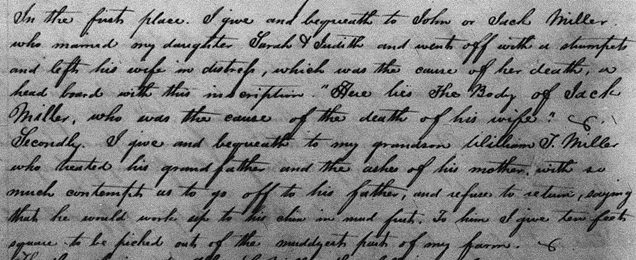 In the first place. I give and bequeath to John or Jack Miller.
who married my daughter Sarah & Judith and went off with a strumpets
and lefts his wife in distress, which was the cause of her death, a
head board with this inscription "Here lies The Body of Jack
Miller, who was the cause of the death of his wife".
Secondly. I give and bequeath to my grandson William T. Miller
who treated his grandfather and the ashes of his mother, with so
much contempt as to go off to his father, and refuse to return, saying
that he would work up to his chin in mud first. To him I give ten feet
square to be picked out of the muddyest part of my farm.